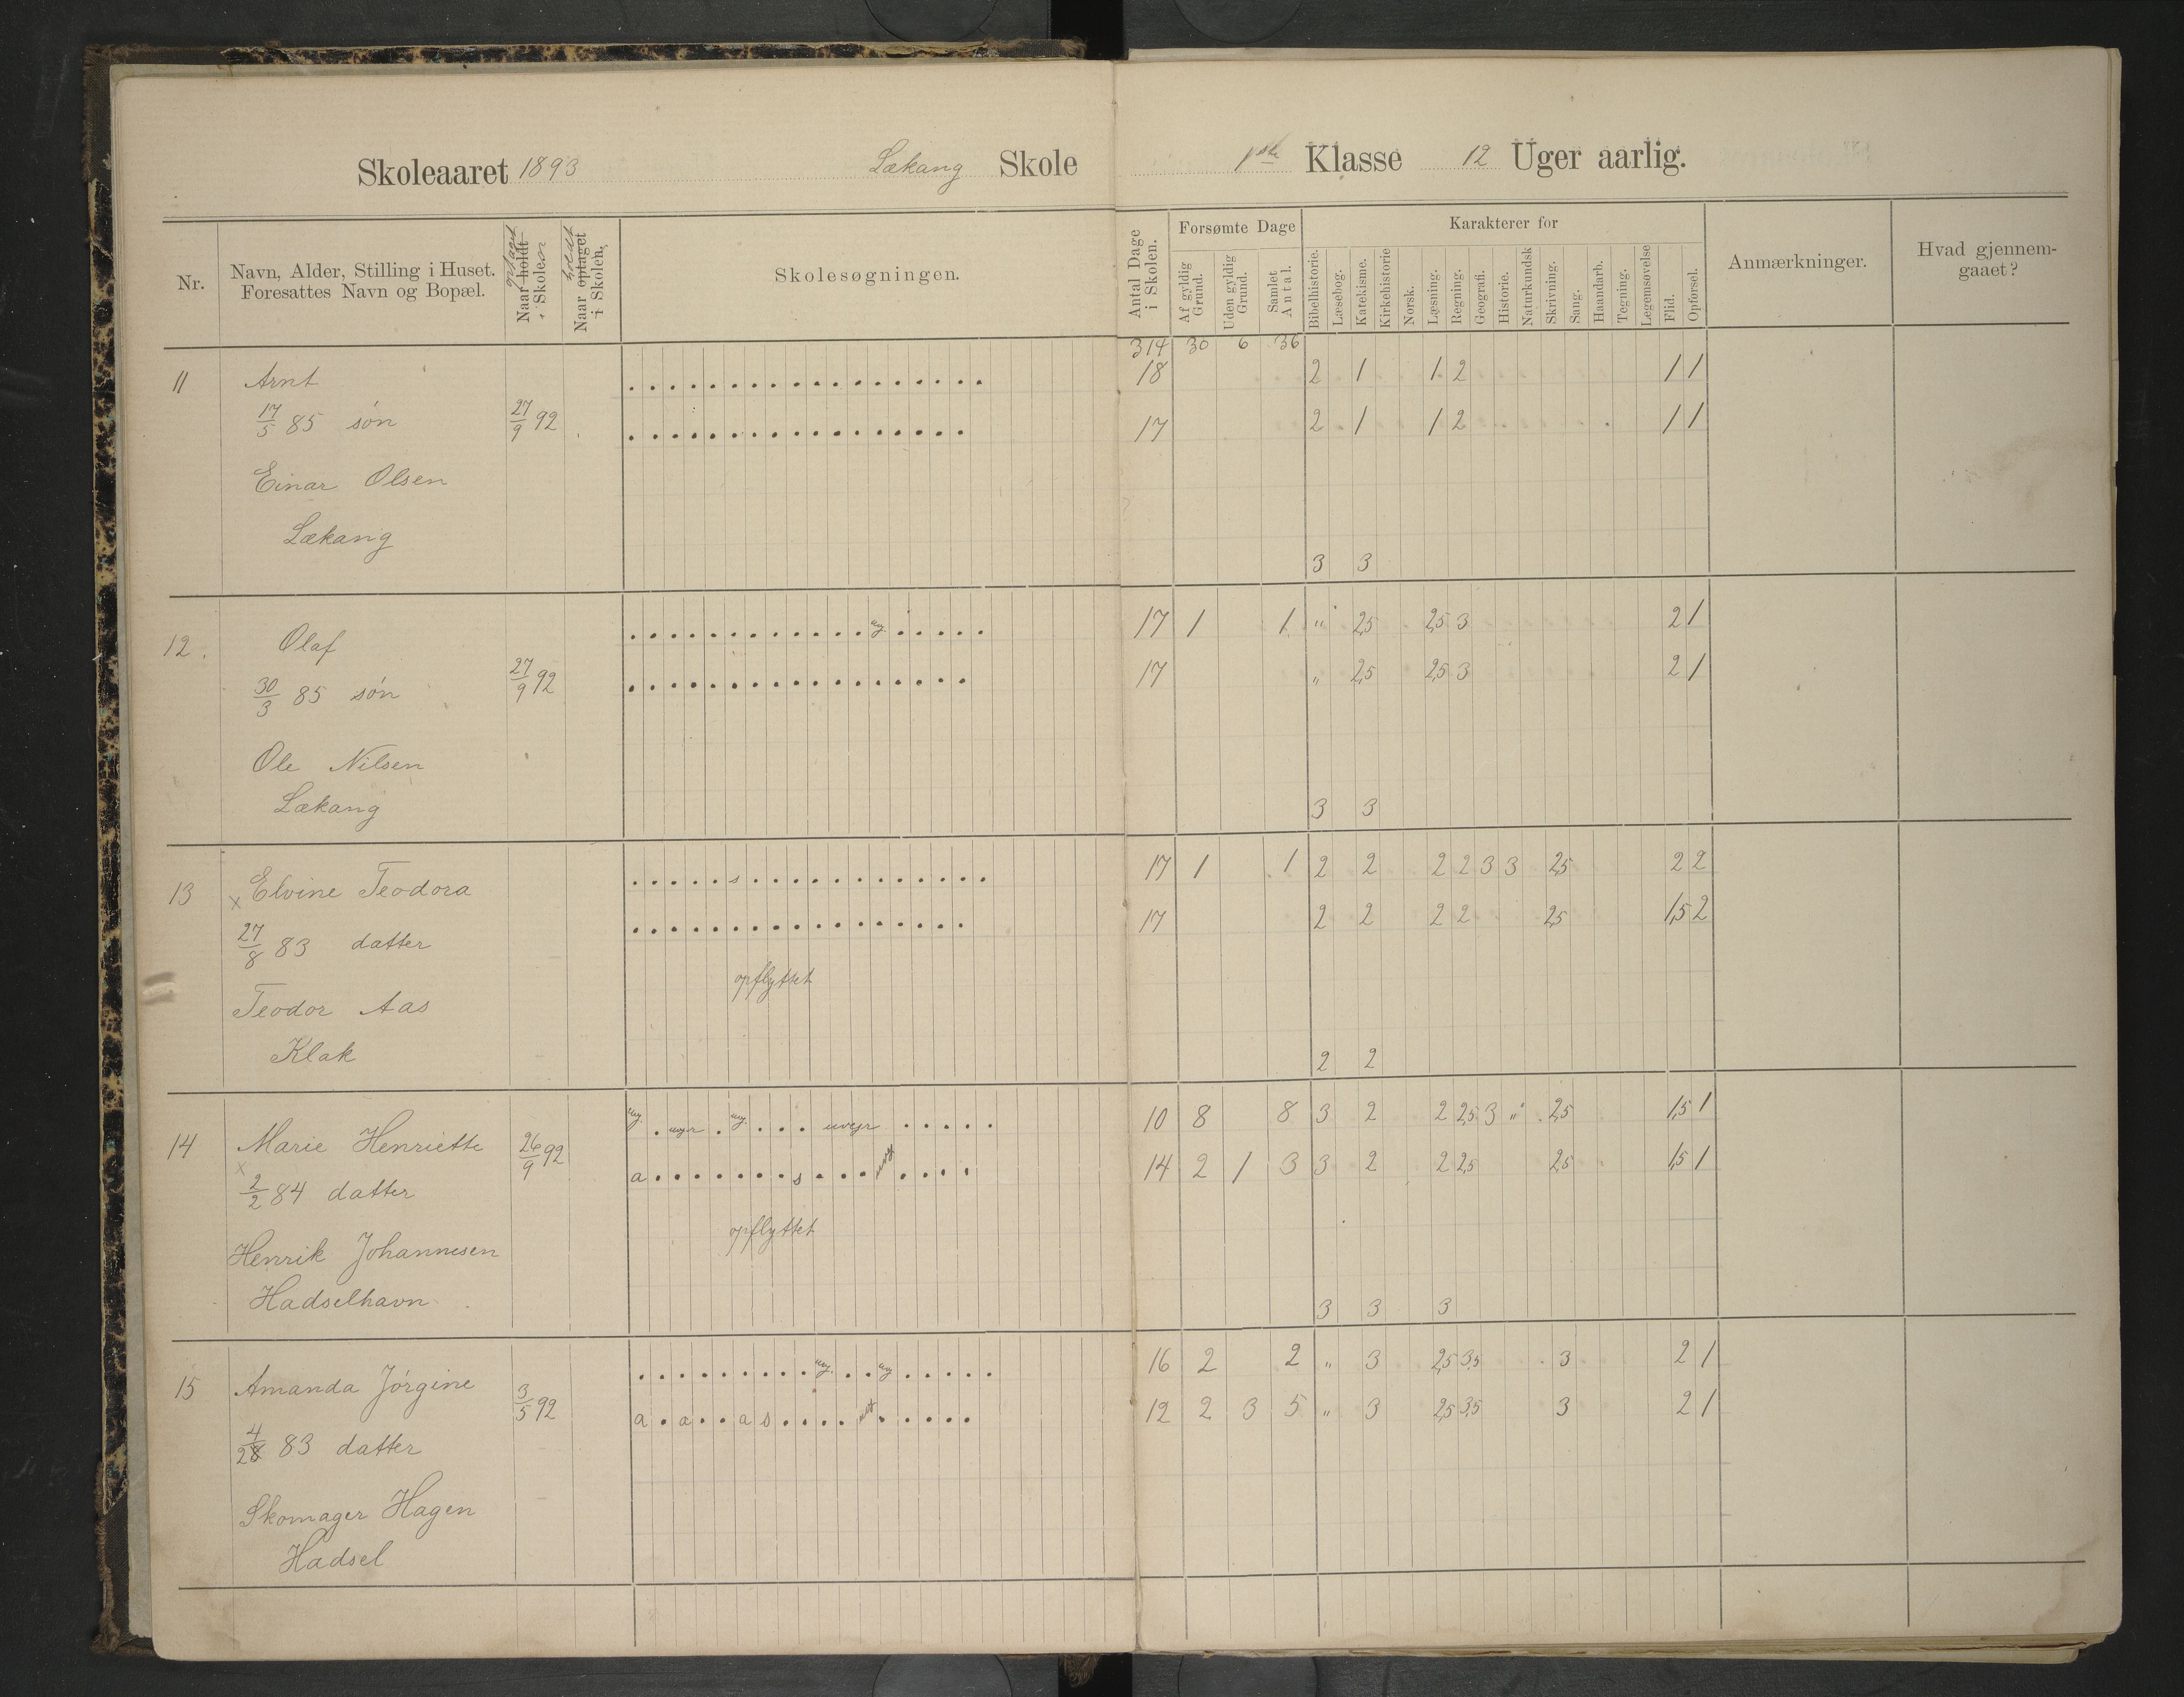 Skoleaaret 1893 Lekang Skole 1ste Klasse 12 Uger aarlig.
Nr.
Navn, Alder, Stilling i Huset.
Foresattes Navn og Bopæl.
Naar holdt optaget i Skolen
Naar optaget holdt i Skolen.
Skolesøgningen.
Antal Dage i Skolen.
Forsømte Dage
Af gyldig Grund.
Uden gyldig Grund.
Samlet Antal.
Karakterer for
Bibelhistorie.
Læsebog.
Katekisme.
Kirkehistorie
Norsk.
Læsning.
Regning.
Geografi.
Historie.
Naturkundsk
Skrivning.
Sang.
Haandarb.
Tegning.
Legemsøvelse
Flid.
Opførsel.
Anmærkninger.
Hvad gjennemgaaet?
314 30 6 36
11 Arnt 18 2 1 1 2 1 1
17/5 85 søn 27/9 92 17 2 1 1 2 1 1
Einar Olsen
Lekang
3 3
12. Olaf ug. 17 1 1 " 2,5 2,5 3 2 1
30/3 85 søn 27/9 92 17 " 2,5 2,5 3 2 1
Ole Nilsen
Lekang 3 3
13 x Elvine Teodora s 17 1 1 2 2 2 2 3 3 2,5 2 2
27/8 83 datter 17 2 2 2 2 2,5 1,5 2
opflyttet
Teodor Aas
Klak 2 2
14 Marie Henriette 26/9 92 uvejr 10 8 8 3 2 2 2,5 3 " 2,5 1,5 1
x 2/2 84 datter a s 14 2 1 3 3 2 2 2,5 2,5 1,5 1
opflyttet
Henrik Johannesen
Hadselhavn 3 3 3
15 Amanda Jørgine 3/5 92 ug. ug 16 2 2 " 3 2,5 3,5 3 2 1
4/2 83 datter a a a s 12 2 3 5 " 3 2,5 3,5 3 2 1
Skomager Hagen
Hadsel